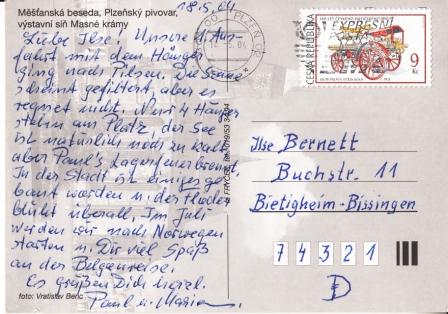 Měšťanská beseda, Plzeňský pivovar,
výstavní síň Masné krámy
18.5.04
Liebe Ilse! Unsere 1. Aus-
fahrt mit dem Hänger
ging nach Pilsen. Die Sonne
scheint gefiltert, aber es
regnet nicht. Nur 4 Hänger
stehn am Platz, der See
ist natürlich noch zu kalt
aber Paul's Lagerfeuer brennt.
In der Stadt ist einiges ge-
baut worden u. der Flieder
blüht überall. Im Juli
werden wir nach Norwegen
starten u. Dir viel Spaß
an der Belgienreise.
Es grüßen Dich herzl.
Paul u. Maria
foto: Vratislav Benc
PLZEŇ
ČESKÁ REPUBLIKA
9
Kč
Ilse Bernett
Buchstr. 11
Bietigheim-Bissingen
74321
D